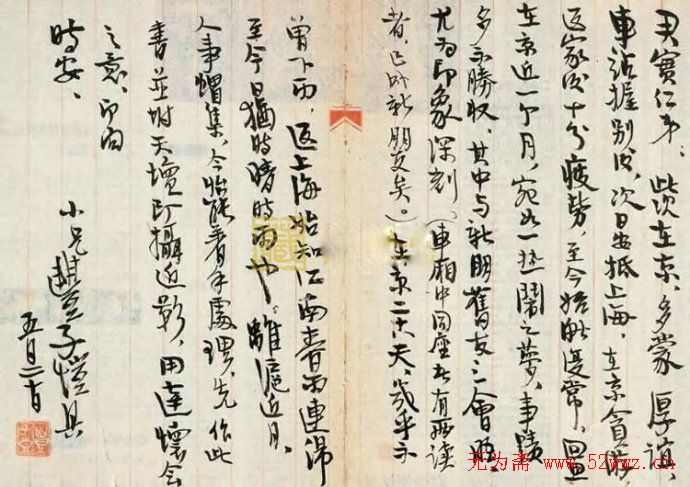 君實仁弟:此次在京,多蒙 厚誼,
車站握別後,次日安抵上海,在京貪遊,
返家後十分疲勞,至今始能復常,回思
在京近一个月,宛如一热鬧之夢,事蹟
多不勝收,其中与新朋舊友之會晤,
尤为印象深刻(車廂中同座者有讀
者,已成新朋友矣。)在京二十天,幾乎未
曾下雨,返上海始知江南春雨連綿
至今日猶時晴時雨也。離滬近月,
人事蝟集,今始能着手處理,先作此
書並附天壇所攝近影,用達懷念
之意,即問
時安、
小兄豐子愷具
五月
无为斋 www.52wwz.cn